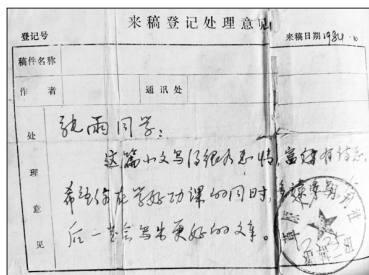 来稿登记处理意见
登记号
来稿日期1984
稿件名称
作者
通讯处
处理意见
张雨同学：
这篇小文写得很有感情，富有
希望你在学好功课的同时，多读
后一定会写出更好的文章。